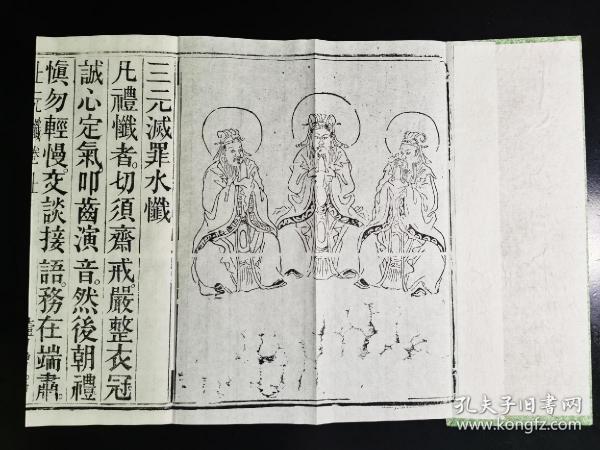 三元滅罪水懺
凡禮懺者。切須齋戒。嚴整衣冠
誠心定氣。叩齒演音。然後朝禮
慎勿輕慢。交談接語。務在端肅。
孔夫子旧书网
www.kongfz.com